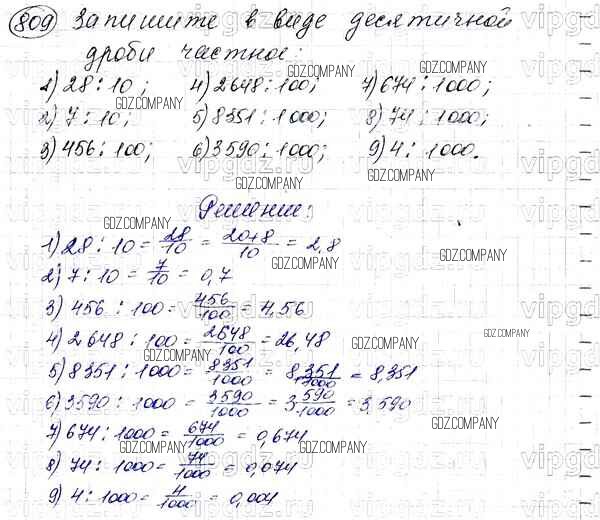 809 Запишите в виде десятичной
дроби частное:
1) 28 : 10; 4) 2648 : 100; 7) 674 : 1000;
2) 7 : 10; 5) 8351 : 1000; 8) 74 : 1000;
3) 456 : 100; 6) 3590 : 1000; 9) 4 : 1000.
Решение:
1) 28 : 10 = 28/10 = 20+8/10 = 2,8
2) 7 : 10 = 7/10 = 0,7
3) 456 : 100 = 456/100 = 4,56
4) 2648 : 100 = 2648/100 = 26,48
5) 8351 : 1000 = 8351/1000 = 8 351/1000 = 8,351
6) 3590 : 1000 = 3590/1000 = 3 590/1000 = 3,590
7) 674 : 1000 = 674/1000 = 0,674
8) 74 : 1000 = 74/1000 = 0,074
9) 4 : 1000 = 4/1000 = 0,004